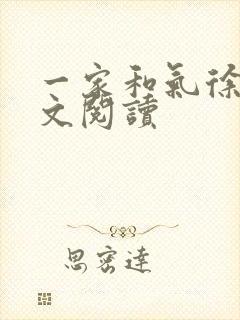 一家和氣徐
文閱讀
思密達